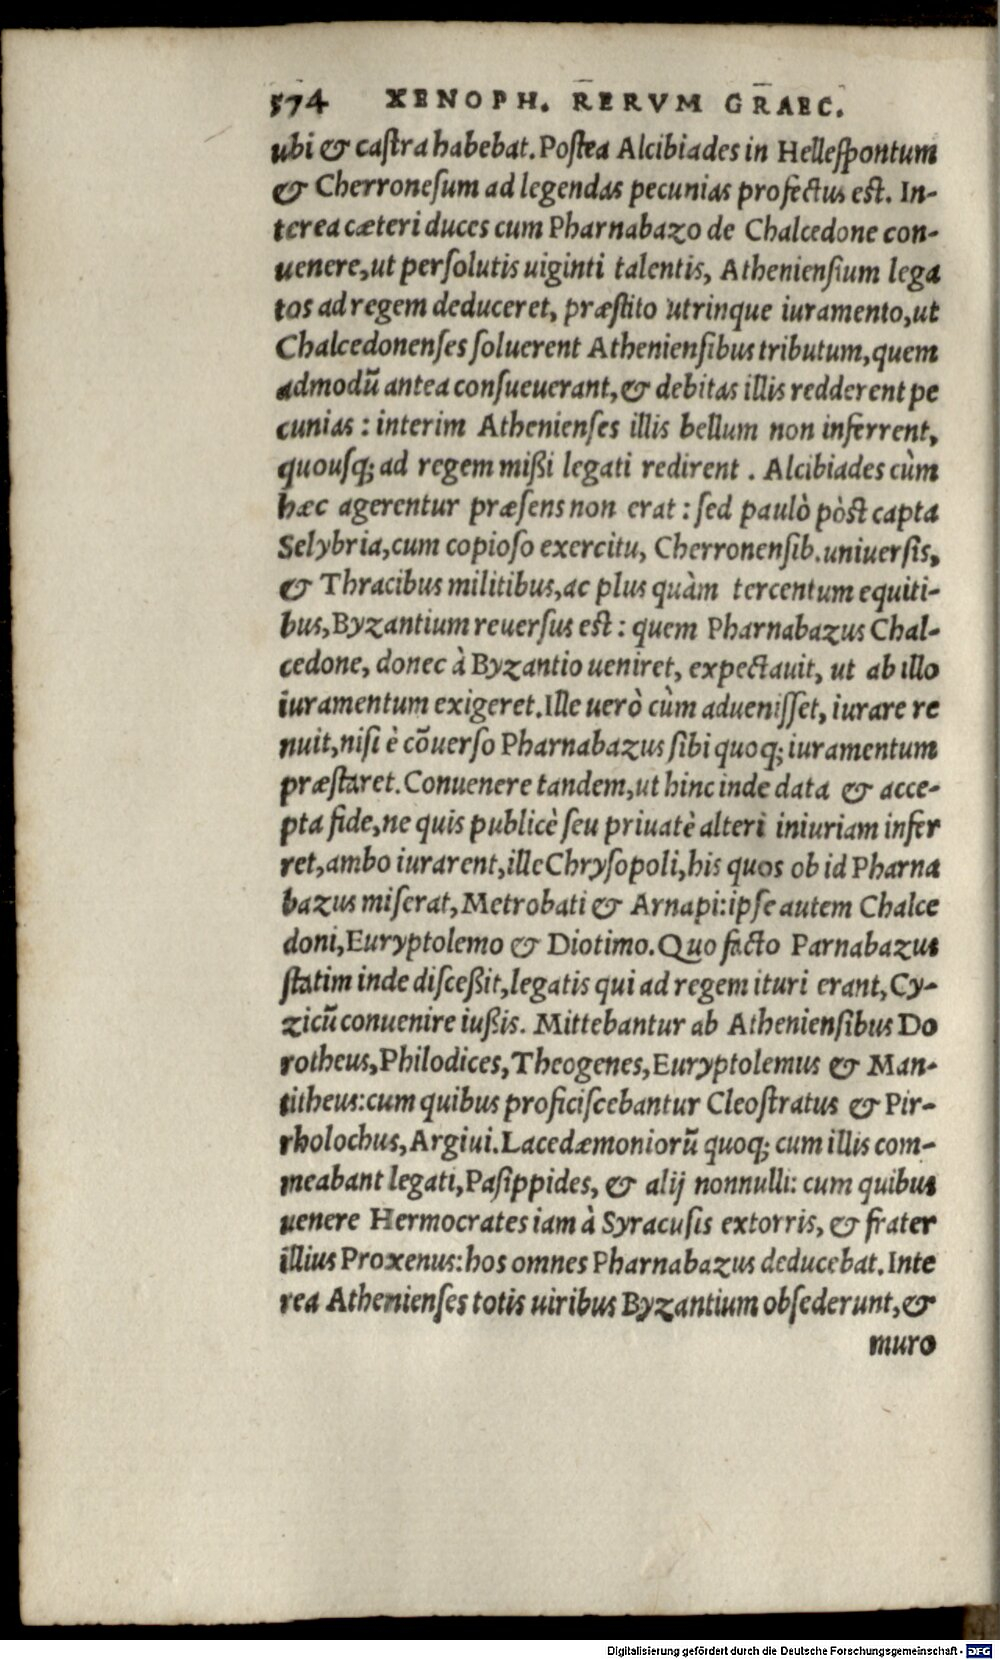 574 XENOPH. RERVM GRAEC.
ubi & castra habebat. Postea Alcibiades in Hellespontum
& Cherronesum ad legendas pecunias profectus est. In-
terea cæteri duces cum Pharnabazo de Chalcedone con-
uenere, ut persolutis uiginti talentis, Atheniensium lega
tos ad regem deduceret, præstito utrinque iuramento, ut
Chalcedonenses soluerent Atheniensibus tributum, quem
admodū antea consueuerant, & debitas illis redderent pe
cunias : interim Athenienses illis bellum non inferrent,
quousq; ad regem mißi legati redirent . Alcibiades cùm
hæc agerentur præsens non erat : sed paulò pòst capta
Selybria, cum copioso exercitu, Cherronensib. uniuersis,
& Thracibus militibus, ac plus quàm tercentum equiti-
bus, Byzantium reuersus est : quem Pharnabazus Chal-
cedone, donec à Byzantio ueniret, expectauit, ut ab illo
iuramentum exigeret. Ille uerò cùm aduenisset, iurare re
nuit, nisi è cōuerso Pharnabazus sibi quoq; iuramentum
præstaret. Conuenere tandem, ut hinc inde data & acce-
pta fide, ne quis publicè seu priuatè alteri iniuriam infer
ret, ambo iurarent, ille Chrysopoli, his quos ob id Pharna
bazus miserat, Metrobati & Arnapi: ipse autem Chalce
doni, Euryptolemo & Diotimo. Quo facto Parnabazus
statim inde disceßit, legatis qui ad regem ituri erant, Cy-
zicū conuenire iußis. Mittebantur ab Atheniensibus Do
rotheus, Philodices, Theogenes, Euryptolemus & Man-
titheus: cum quibus proficiscebantur Cleostratus & Pir-
rholochus, Argiui. Lacedæmoniorū quoq; cum illis com-
meabant legati, Pasippides, & alij nonnulli: cum quibus
uenere Hermocrates iam à Syracusis extorris, & frater
illius Proxenus: hos omnes Pharnabazus deducebat. Inte
rea Athenienses totis uiribus Byzantium obsederunt, &
muro
Digitalisierung gefördert durch die Deutsche Forschungsgemeinschaft - DFG